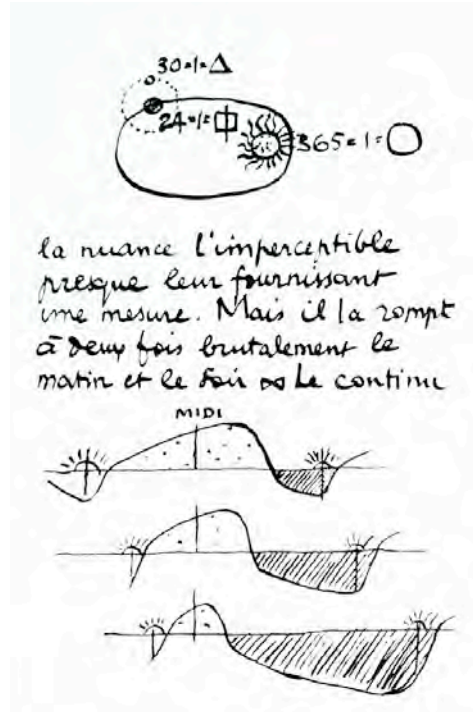 30=1=△
24=1=
365=1=○
la nuance l'imperceptible
presque leur fournissant
une mesure. Mais il la rompt
à deux fois brutalement le
matin et le soir ∞ Le continu
MIDI